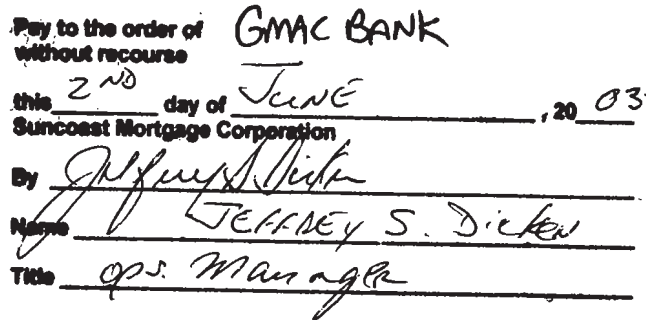 Pay to the order of GMAC BANK
without recourse
this 2ND day of JUNE, 2003
Suncoast Mortgage Corporation
By Jeffrey S. Dicken
Name JEFFREY S. Dicken
Title ops. Manager